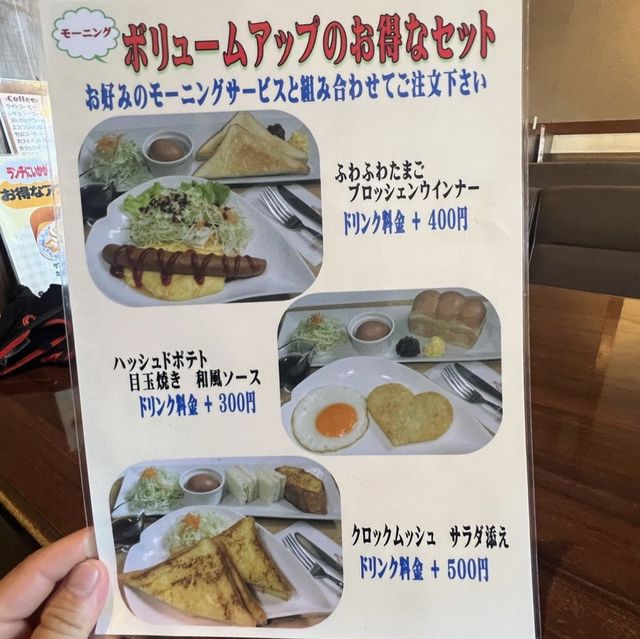 モーニング
ボリュームアップのお得なセット
お好みのモーニングサービスと組み合わせてご注文下さい
ふわふわたまご
ブロッシェンウインナー
ドリンク料金 + 400円
ハッシュドポテト
目玉焼き 和風ソース
ドリンク料金 + 300円
クロックムッシュ サラダ添え
ドリンク料金 + 500円
Coffee